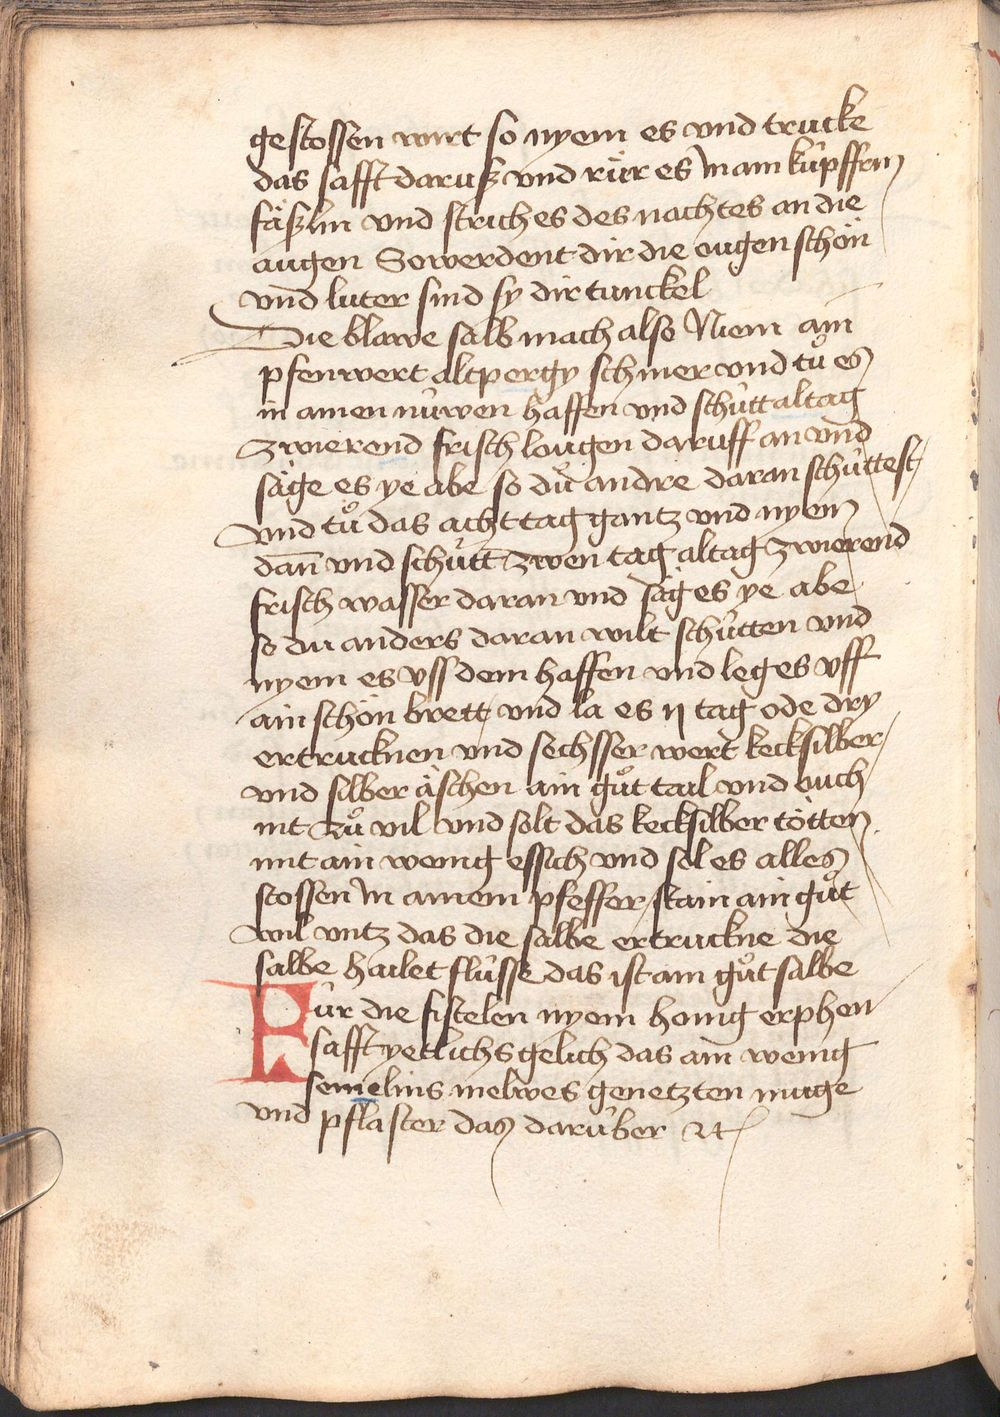 gestossen wirt so nyem es vnd trucke
das safft darusz vnd rür es In ain kúpffrin
fäszlin vnd strich es des nachtes an die
augen So werdent dir die ougen schön
vnd luter sind sy dir tunckel
Die blawe salb mach also Niem ain
pfenwert altpergy schmer vnd tuͦ es
in ainen núwen haffen vnd schútt altag
zwierend frisch lougen daruff an vnd
säge es ye abe so duͦ andre daran schúttest
vnd tuͦ das acht tag gantz vnd nyem
dan̄ vnd schútt zwen tag altag zwierend
frisch wasser daran vnd säg es ye abe
so du anders daran wilt schútten vnd
nyem es vss dem haffen vnd leg es vff
ain schön brett vnd la es ij tag ode dry
ertrucknen vnd sechsser wert kecksilber
vnd silber äschen ain guͦt tail vnd ouch
nit zuͦ vil vnd solt das kecksilber tötten
mit ain wenig essich vnd sol es alles
stossen In ainem pfeffer stain ain guͦt
wil vntz das die salbe ertruckne die
salbe hailet flússe das ist ain guͦt salbe
Fúr die fistelen nyem honig erphen
safft yetlichs gelich das ain wenig
semelins melwes genetzten muge
vnd pflaster das darúber ⁊c